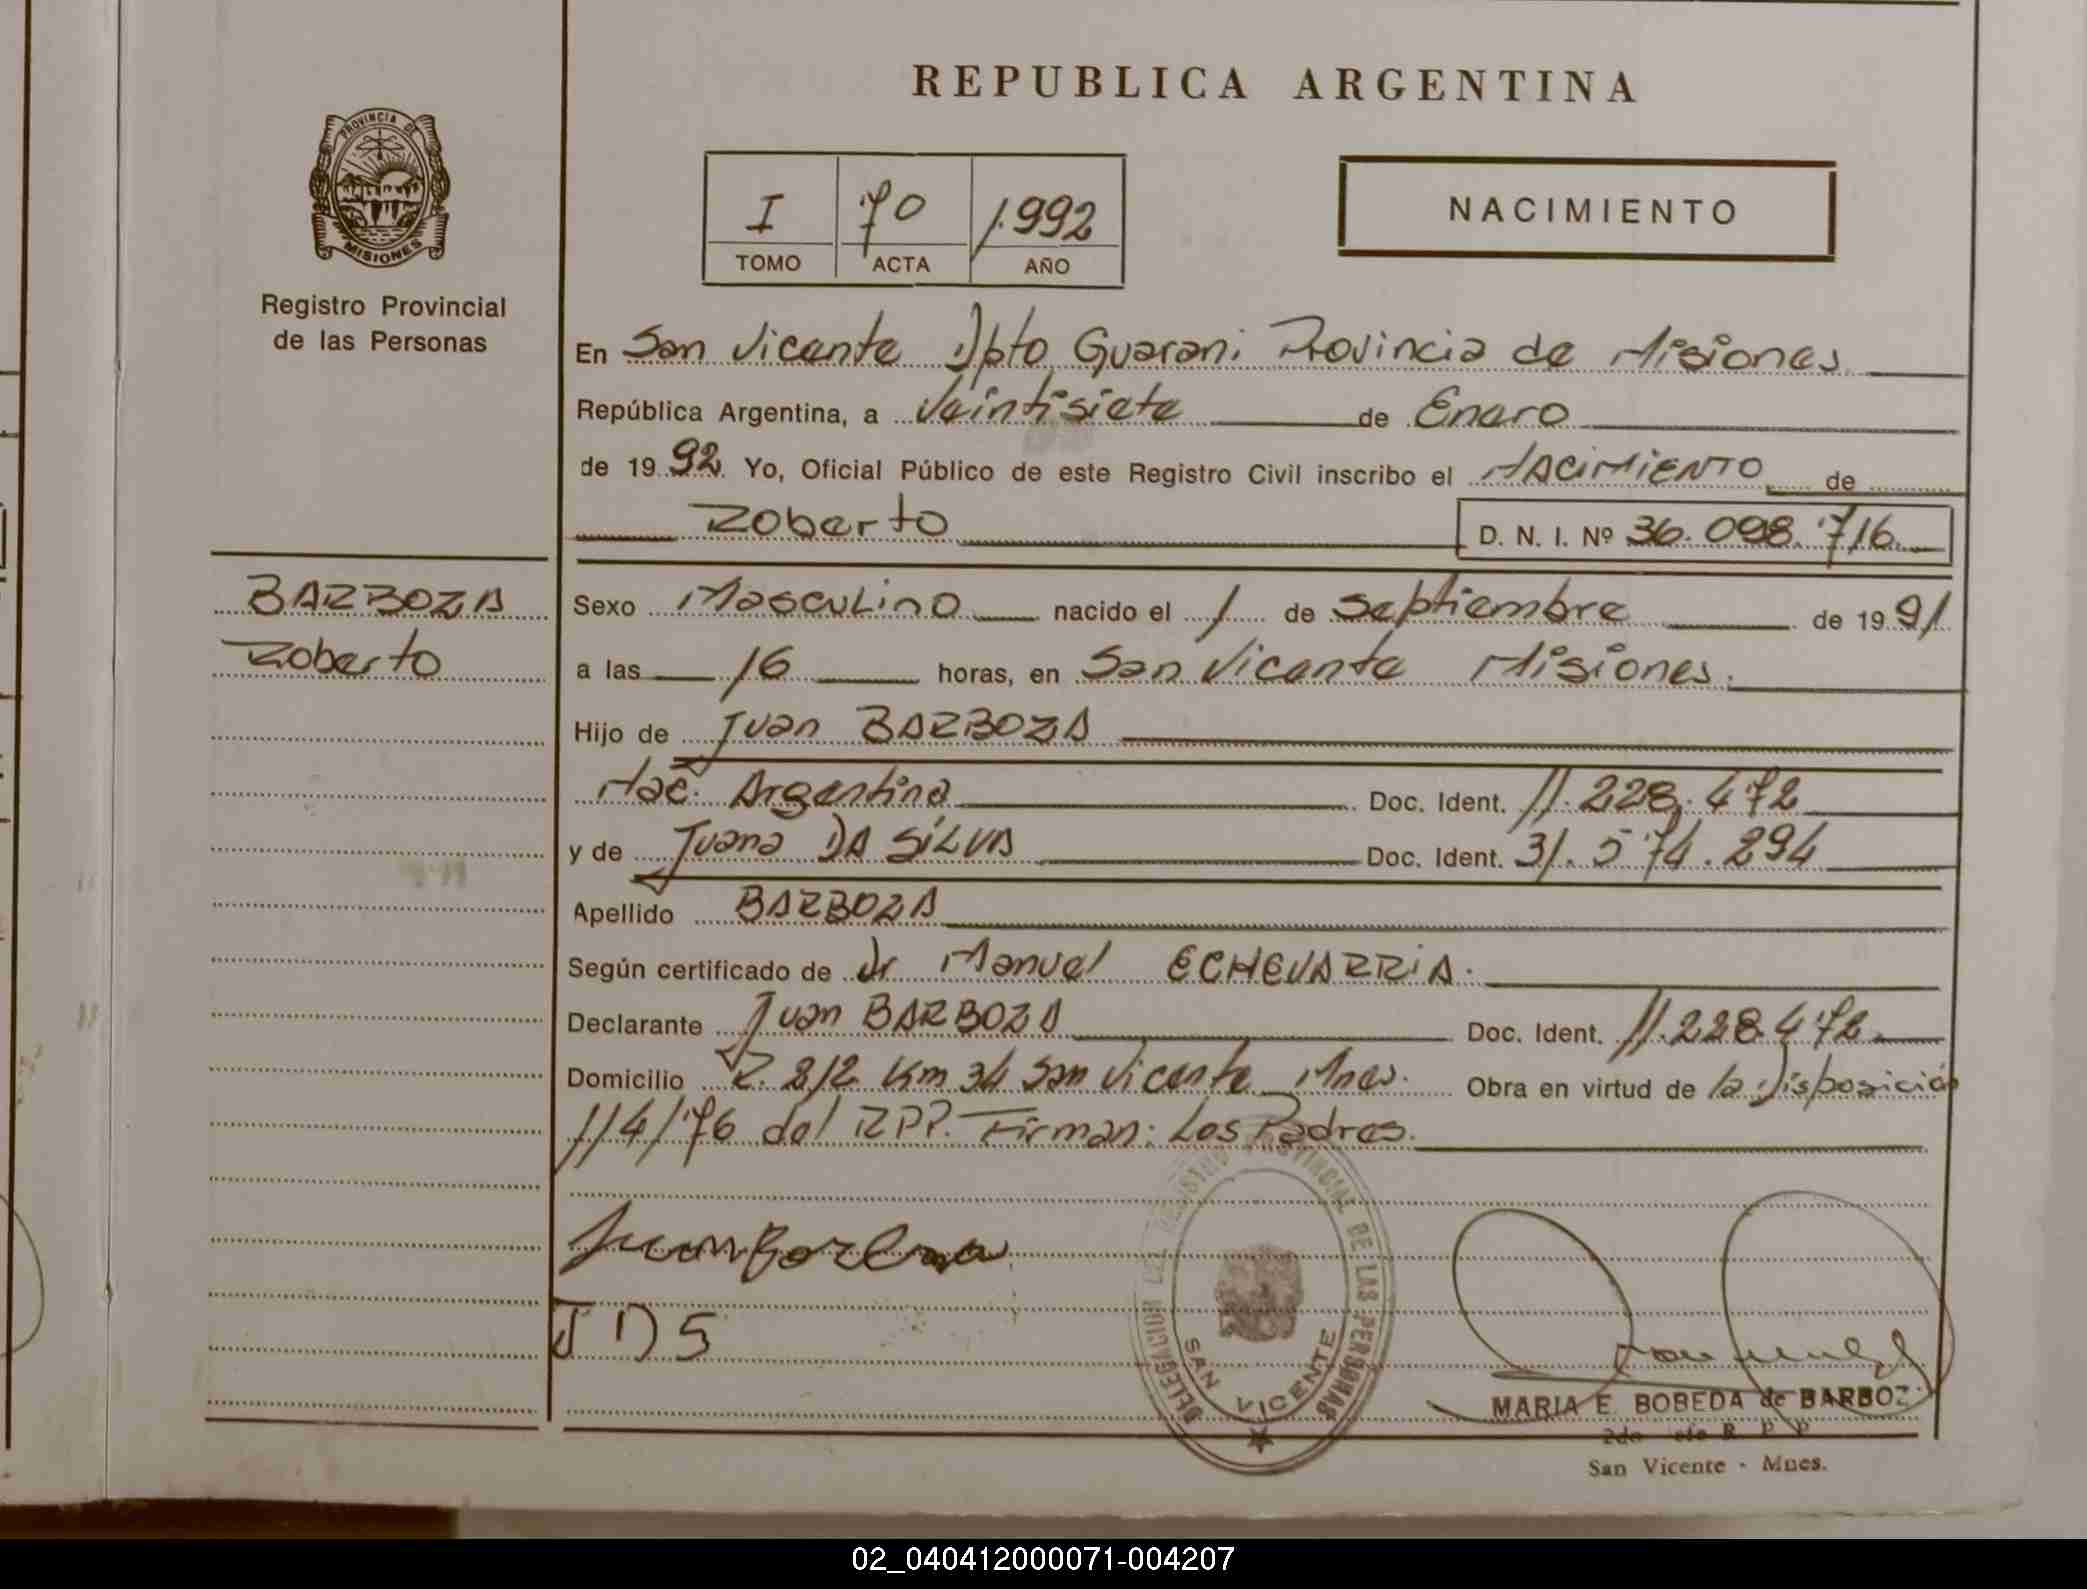 REPUBLICA ARGENTINA
PROVINCIA DE
MISIONES
Registro Provincial
de las Personas
I 70 1.992
TOMO ACTA AÑO
NACIMIENTO
En San Vicente Dpto Guarani Provincia de Misiones
República Argentina, a Veintisiete de Enero
de 1992 Yo, Oficial Público de este Registro Civil inscribo el NACIMIENTO de
Roberto D. N. I. Nº 36.098.716
BARBOZA
Roberto
Sexo Masculino nacido el 1 de Septiembre de 1991
a las 16 horas, en San Vicente Misiones.
Hijo de Juan BARBOZA
Nac. Argentina Doc. Ident. 11.228.472
y de Juana DA SILVA Doc. Ident. 31.574.294
Apellido BARBOZA
Según certificado de Dr Manuel ECHEVARRIA.
Declarante Juan BARBOZA Doc. Ident. 11.228.472
Domicilio R. 212 Km 34 San Vicente Mnes. Obra en virtud de la Disposición
114/76 del RPP. Firman: Los Padres.
JDS
DELEGACION DEL REGISTRO PROVINCIAL DE LAS PERSONAS
SAN VICENTE
MARIA E. BOBEDA de BARBOZ
R P P
San Vicente - Mnes.
02_040412000071-004207